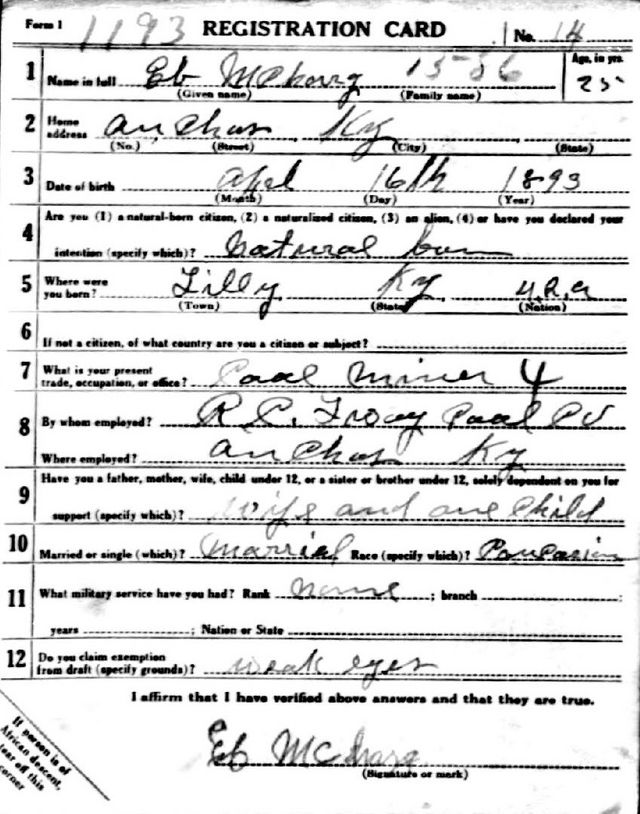 Form 1 1193 REGISTRATION CARD No. 14
1 Name in full Eb 15-86 Age, in yrs. 25
(Given name) (Family name)
2 Home address Anchor Ky
(No.) (Street) (City) (State)
3 Date of birth April 16th 1893
(Month) (Day) (Year)
4 Are you (1) a natural-born citizen, (2) a naturalized citizen, (3) an alien, (4) or have you declared your
intention (specify which)? Natural born
5 Where were you born? Lilly Ky U.S.A
(Town) (State) (Nation)
6 If not a citizen, of what country are you a citizen or subject?
7 What is your present trade, occupation, or office? Coal miner 4
8 By whom employed? R.C. Coal Co
Where employed? Anchor Ky
9 Have you a father, mother, wife, child under 12, or a sister or brother under 12, solely dependent on you for
support (specify which)? wife and one child
10 Married or single (which)? Married Race (specify which)? Caucasian
11 What military service have you had? Rank none ; branch ;
years ; Nation or State
12 Do you claim exemption from draft (specify grounds)? weak eyes
I affirm that I have verified above answers and that they are true.
Eb
(Signature or mark)
If person is of
African descent,
tear off this
corner